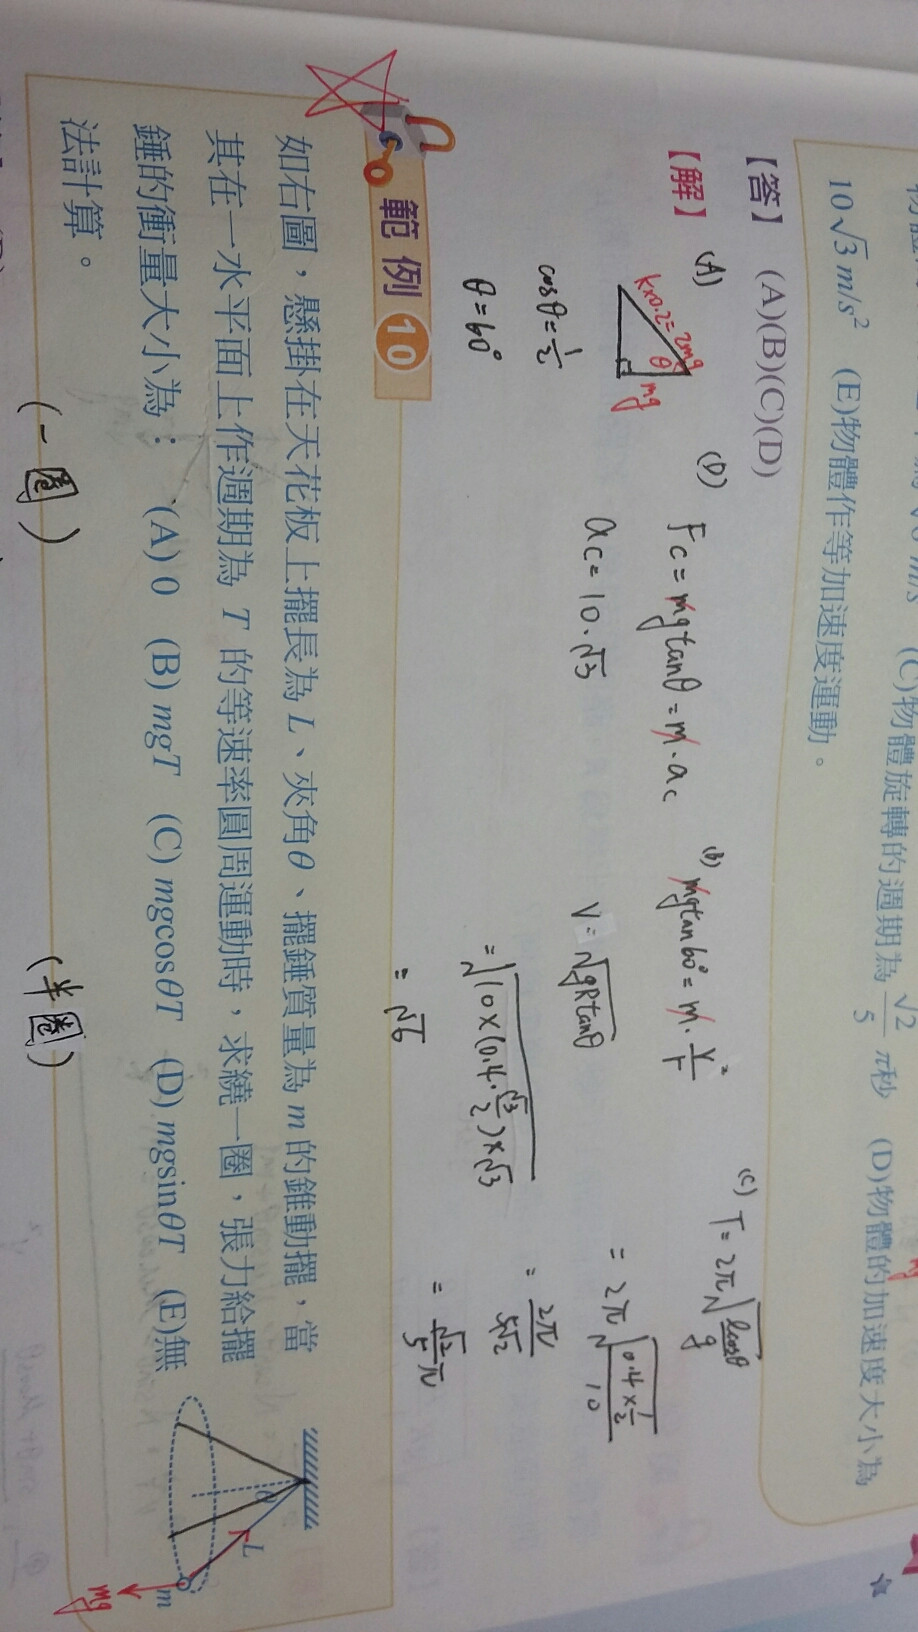 10√3 m/s² (E)物體作等加速度運動。
(C)物體旋轉的週期為 √2/5 π秒 (D)物體的加速度大小為
【答】(A)(B)(C)(D)
【解】
(A)
k×0.2=2mg
θ
mg
cosθ=1/2
θ=60°
(D) Fc=mgtanθ=m·ac
ac=10·√3
(B) mgtan60°=m·v²/r
V=√(gRtanθ)
=√(10×(0.4·√3/2)×√3)
=√6
(C) T=2π√(lcosθ/g)
=2π√(0.4×1/2/10)
=2π/5√2
=√2/5 π
範例 10
如右圖，懸掛在天花板上擺長為 L、夾角θ、擺錘質量為 m 的錐動擺，當
其在一水平面上作週期為 T 的等速率圓周運動時，求繞一圈，張力給擺
錘的衝量大小為： (A) 0 (B) mgT (C) mgcosθT (D) mgsinθT (E)無
法計算。
(一圈) (半圈)
θ
L
m
mg